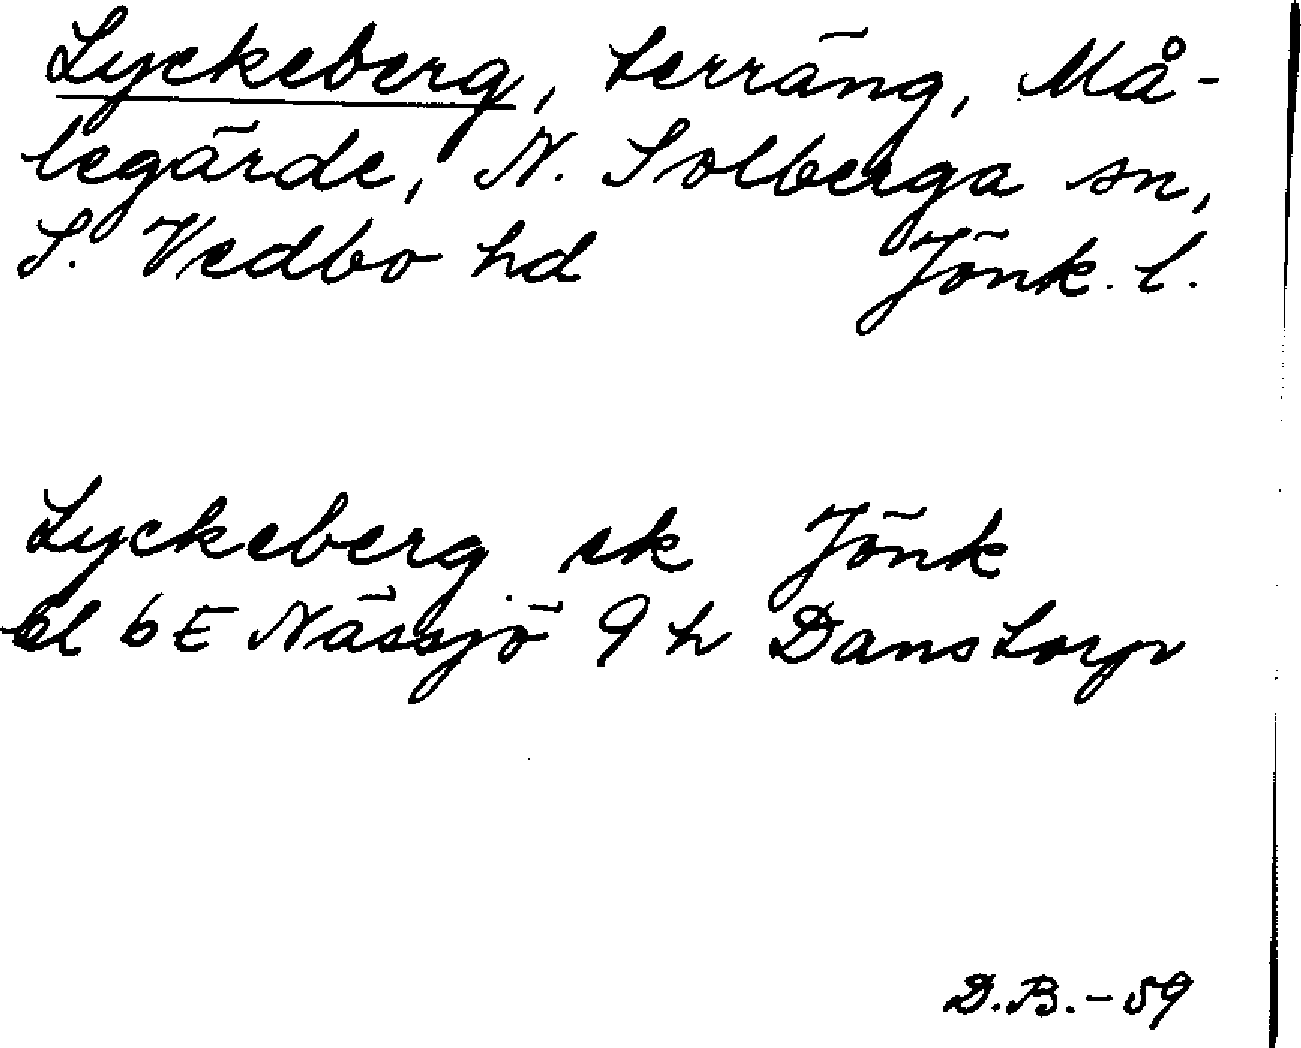 Lyckeberg, terräng, Må-
legärde, N. Solberga sn,
S. Vedbo hd Jönk. l.
Lyckeberg ek Jönk
bl 6E Nässjö 9h Danstorp
D.B.-59